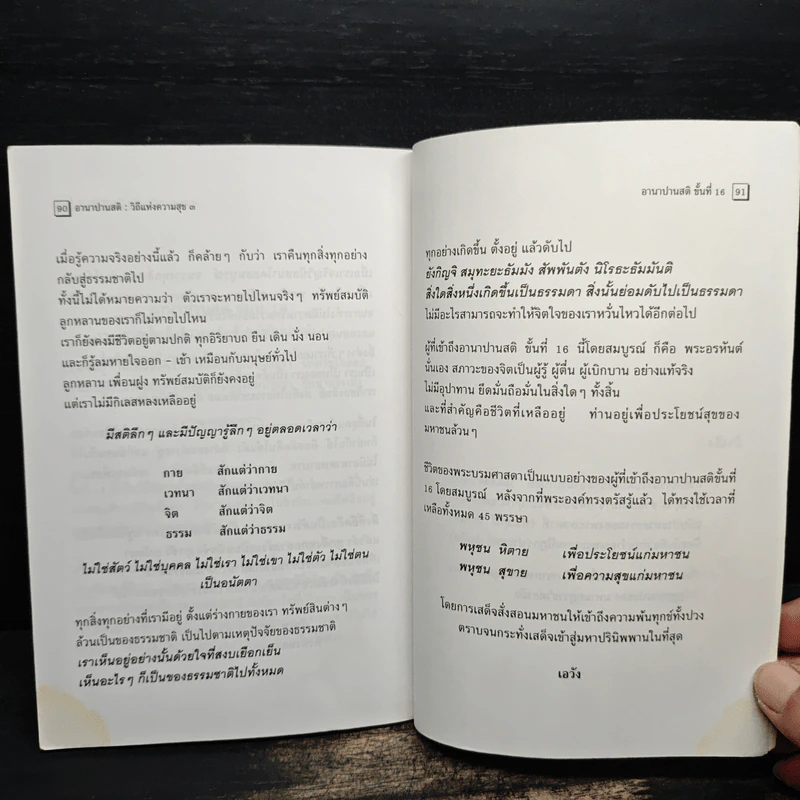 90 อานาปานสติ : วิถีแห่งความสุข ๓
เมื่อรู้ความจริงอย่างนี้แล้ว ก็คล้ายๆ กับว่า เราคืนทุกสิ่งทุกอย่าง
กลับสู่ธรรมชาติไป
ทั้งนี้ไม่ได้หมายความว่า ตัวเราจะหายไปไหนจริงๆ ทรัพย์สมบัติ
ลูกหลานของเราก็ไม่หายไปไหน
เราก็ยังคงมีชีวิตอยู่ตามปกติ ทุกอิริยาบถ ยืน เดิน นั่ง นอน
และก็รู้ลมหายใจออก - เข้า เหมือนกับมนุษย์ทั่วไป
ลูกหลาน เพื่อนฝูง ทรัพย์สมบัติก็ยังคงอยู่
แต่เราไม่มีกิเลสหลงเหลืออยู่
มีสติลึกๆ และมีปัญญารู้ลึกๆ อยู่ตลอดเวลาว่า
กาย สักแต่ว่ากาย
เวทนา สักแต่ว่าเวทนา
จิต สักแต่ว่าจิต
ธรรม สักแต่ว่าธรรม
ไม่ใช่สัตว์ ไม่ใช่บุคคล ไม่ใช่เรา ไม่ใช่เขา ไม่ใช่ตัว ไม่ใช่ตน
เป็นอนัตตา
ทุกสิ่งทุกอย่างที่เรามีอยู่ ตั้งแต่ร่างกายของเรา ทรัพย์สินต่างๆ
ล้วนเป็นของธรรมชาติ เป็นไปตามเหตุปัจจัยของธรรมชาติ
เราเห็นอยู่อย่างนั้นด้วยใจที่สงบเยือกเย็น
เห็นอะไรๆ ก็เป็นของธรรมชาติไปทั้งหมด
อานาปานสติ ขั้นที่ 16 91
ทุกอย่างเกิดขึ้น ตั้งอยู่ แล้วดับไป
ยังกิญจิ สมุทะยะธัมมัง สัพพันตัง นิโรธะธัมมันติ
สิ่งใดสิ่งหนึ่งเกิดขึ้นเป็นธรรมดา สิ่งนั้นย่อมดับไปเป็นธรรมดา
ไม่มีอะไรสามารถจะทำให้จิตใจของเราหวั่นไหวได้อีกต่อไป
ผู้ที่เข้าถึงอานาปานสติ ขั้นที่ 16 นี้โดยสมบูรณ์ ก็คือ พระอรหันต์
นั่นเอง สภาวะของจิตเป็นผู้รู้ ผู้ตื่น ผู้เบิกบาน อย่างแท้จริง
ไม่มีอุปาทาน ยึดมั่นถือมั่นในสิ่งใดๆ ทั้งสิ้น
และที่สำคัญคือชีวิตที่เหลืออยู่ ท่านอยู่เพื่อประโยชน์สุขของ
มหาชนล้วนๆ
ชีวิตของพระบรมศาสดาเป็นแบบอย่างของผู้ที่เข้าถึงอานาปานสติขั้นที่
16 โดยสมบูรณ์ หลังจากที่พระองค์ทรงตรัสรู้แล้ว ได้ทรงใช้เวลาที่
เหลือทั้งหมด 45 พรรษา
พหุชน หิตาย เพื่อประโยชน์แก่มหาชน
พหุชน สุขาย เพื่อความสุขแก่มหาชน
โดยการเสด็จสั่งสอนมหาชนให้เข้าถึงความพ้นทุกข์ทั้งปวง
ตราบจนกระทั่งเสด็จเข้าสู่มหาปรินิพพานในที่สุด
เอวัง